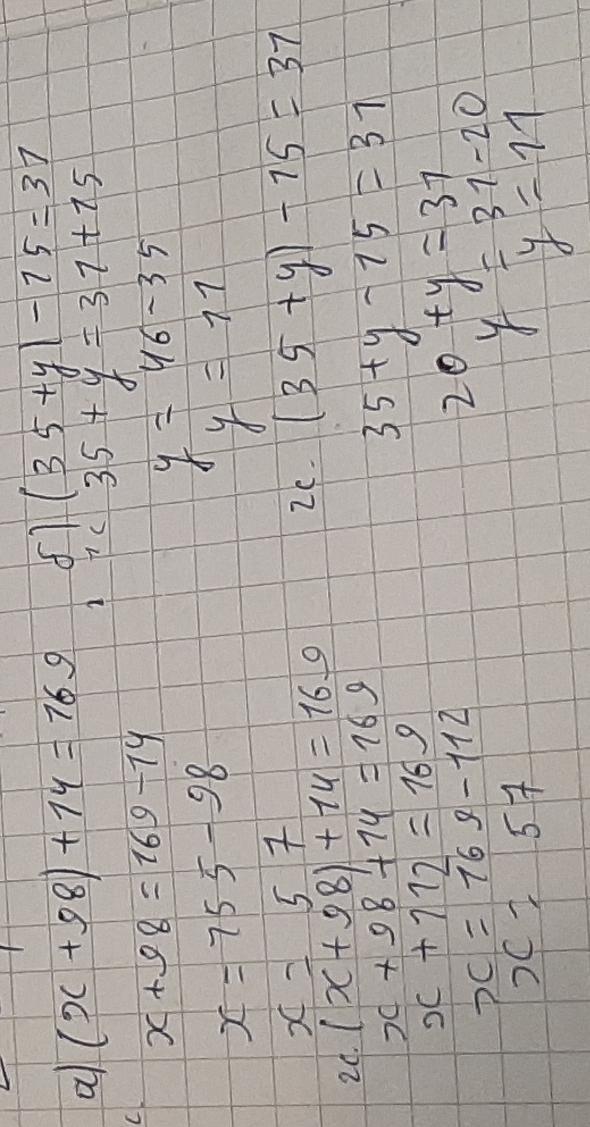 а) (x + 98) + 14 = 169
x + 98 = 169 - 14
x = 155 - 98
x = 57
2с. (x + 98) + 14 = 169
x + 98 + 14 = 169
x + 112 = 169
x = 169 - 112
x = 57
б) (35 + y) - 15 = 31
1с 35 + y = 31 + 15
y = 46 - 35
y = 11
2с. (35 + y) - 15 = 31
35 + y - 15 = 31
20 + y = 31
y = 31 - 20
y = 11